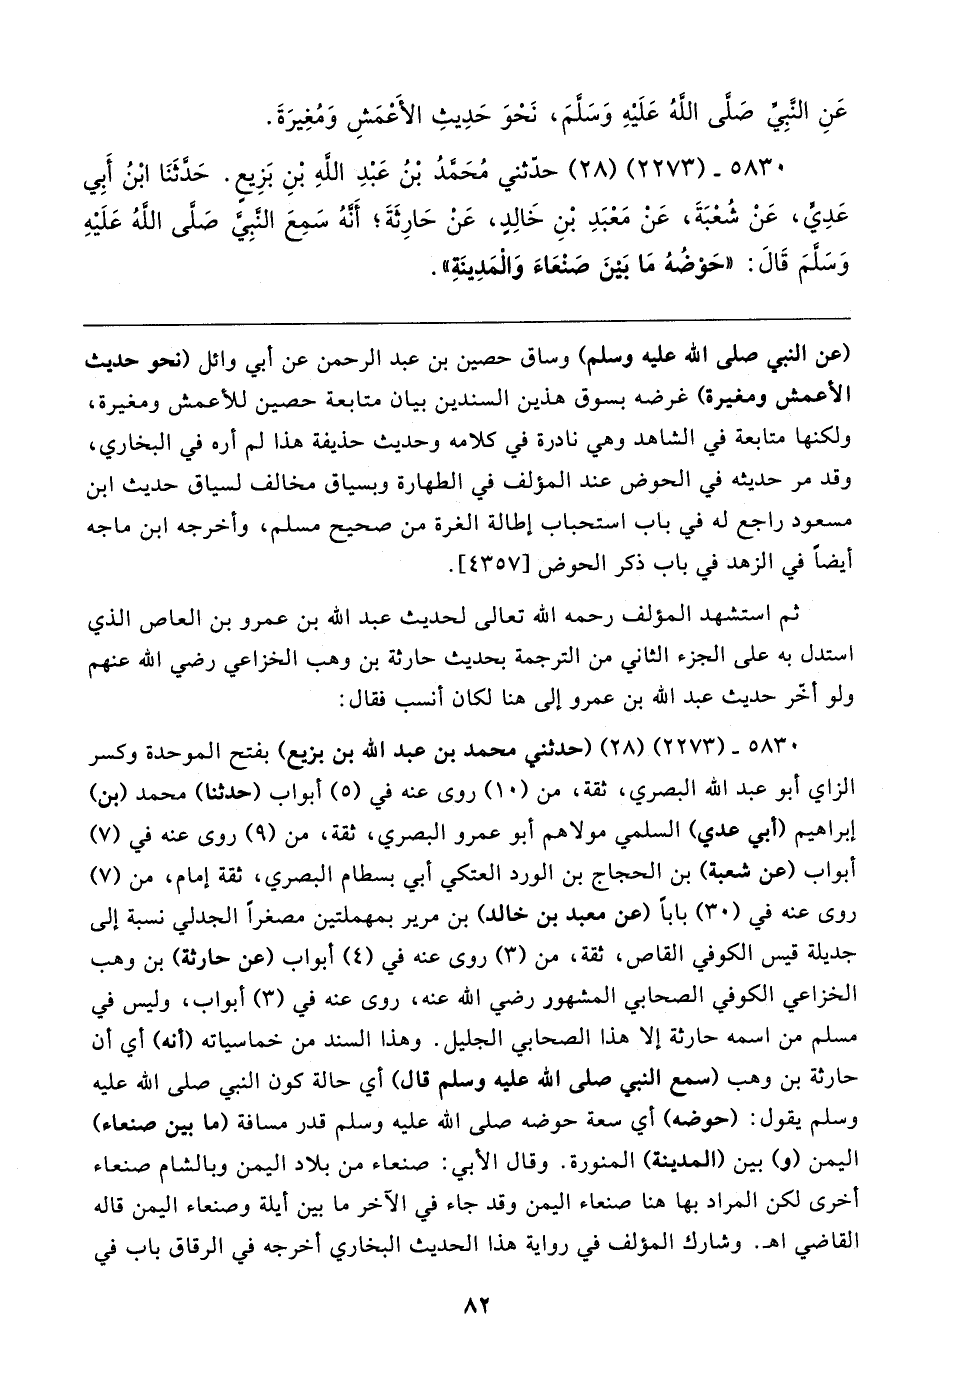 عَنِ النَّبِيِّ صَلَّى اللَّهُ عَلَيْهِ وَسَلَّمَ، نَحْوَ حَدِيثِ الأَعْمَشِ وَمُغِيرَةَ.
٥٨٣٠ - (٢٢٧٣) (٢٨) حدّثني مُحَمَّدُ بْنُ عَبْدِ اللَّهِ بْنِ بَزِيعٍ. حَدَّثَنَا ابْنُ أَبِي
عَدِيٍّ، عَنْ شُعْبَةَ، عَنْ مَعْبَدِ بْنِ خَالِدٍ، عَنْ حَارِثَةَ؛ أَنَّهُ سَمِعَ النَّبِيَّ صَلَّى اللَّهُ عَلَيْهِ
وَسَلَّمَ قَالَ: «حَوْضُهُ مَا بَيْنَ صَنْعَاءَ وَالْمَدِينَةِ».
(عن النبي صلى الله عليه وسلم) وساق حصين بن عبد الرحمن عن أبي وائل (نحو حديث
الأعمش ومغيرة) غرضه بسوق هذين السندين بيان متابعة حصين للأعمش ومغيرة،
ولكنها متابعة في الشاهد وهي نادرة في كلامه وحديث حذيفة هذا لم أره في البخاري،
وقد مر حديثه في الحوض عند المؤلف في الطهارة وبسياق مخالف لسياق حديث ابن
مسعود راجع له في باب استحباب إطالة الغرة من صحيح مسلم، وأخرجه ابن ماجه
أيضاً في الزهد في باب ذكر الحوض [٤٣٥٧].
ثم استشهد المؤلف رحمه الله تعالى لحديث عبد الله بن عمرو بن العاص الذي
استدل به على الجزء الثاني من الترجمة بحديث حارثة بن وهب الخزاعي رضي الله عنهم
ولو أخّر حديث عبد الله بن عمرو إلى هنا لكان أنسب فقال:
٥٨٣٠ - (٢٢٧٣) (٢٨) (حدثني محمد بن عبد الله بن بزيع) بفتح الموحدة وكسر
الزاي أبو عبد الله البصري، ثقة، من (١٠) روى عنه في (٥) أبواب (حدثنا) محمد (بن)
إبراهيم (أبي عدي) السلمي مولاهم أبو عمرو البصري، ثقة، من (٩) روى عنه في (٧)
أبواب (عن شعبة) بن الحجاج بن الورد العتكي أبي بسطام البصري، ثقة إمام، من (٧)
روى عنه في (٣٠) باباً (عن معبد بن خالد) بن مرير بمهملتين مصغراً الجدلي نسبة إلى
جديلة قيس الكوفي القاص، ثقة، من (٣) روى عنه في (٤) أبواب (عن حارثة) بن وهب
الخزاعي الكوفي الصحابي المشهور رضي الله عنه، روى عنه في (٣) أبواب، وليس في
مسلم من اسمه حارثة إلا هذا الصحابي الجليل. وهذا السند من خماسياته (أنه) أي أن
حارثة بن وهب (سمع النبي صلى الله عليه وسلم قال) أي حالة كون النبي صلى الله عليه
وسلم يقول: (حوضه) أي سعة حوضه صلى الله عليه وسلم قدر مسافة (ما بين صنعاء)
اليمن (و) بين (المدينة) المنورة. وقال الأبي: صنعاء من بلاد اليمن وبالشام صنعاء
أخرى لكن المراد بها هنا صنعاء اليمن وقد جاء في الآخر ما بين أيلة وصنعاء اليمن قاله
القاضي اهـ. وشارك المؤلف في رواية هذا الحديث البخاري أخرجه في الرقاق باب في
٨٢